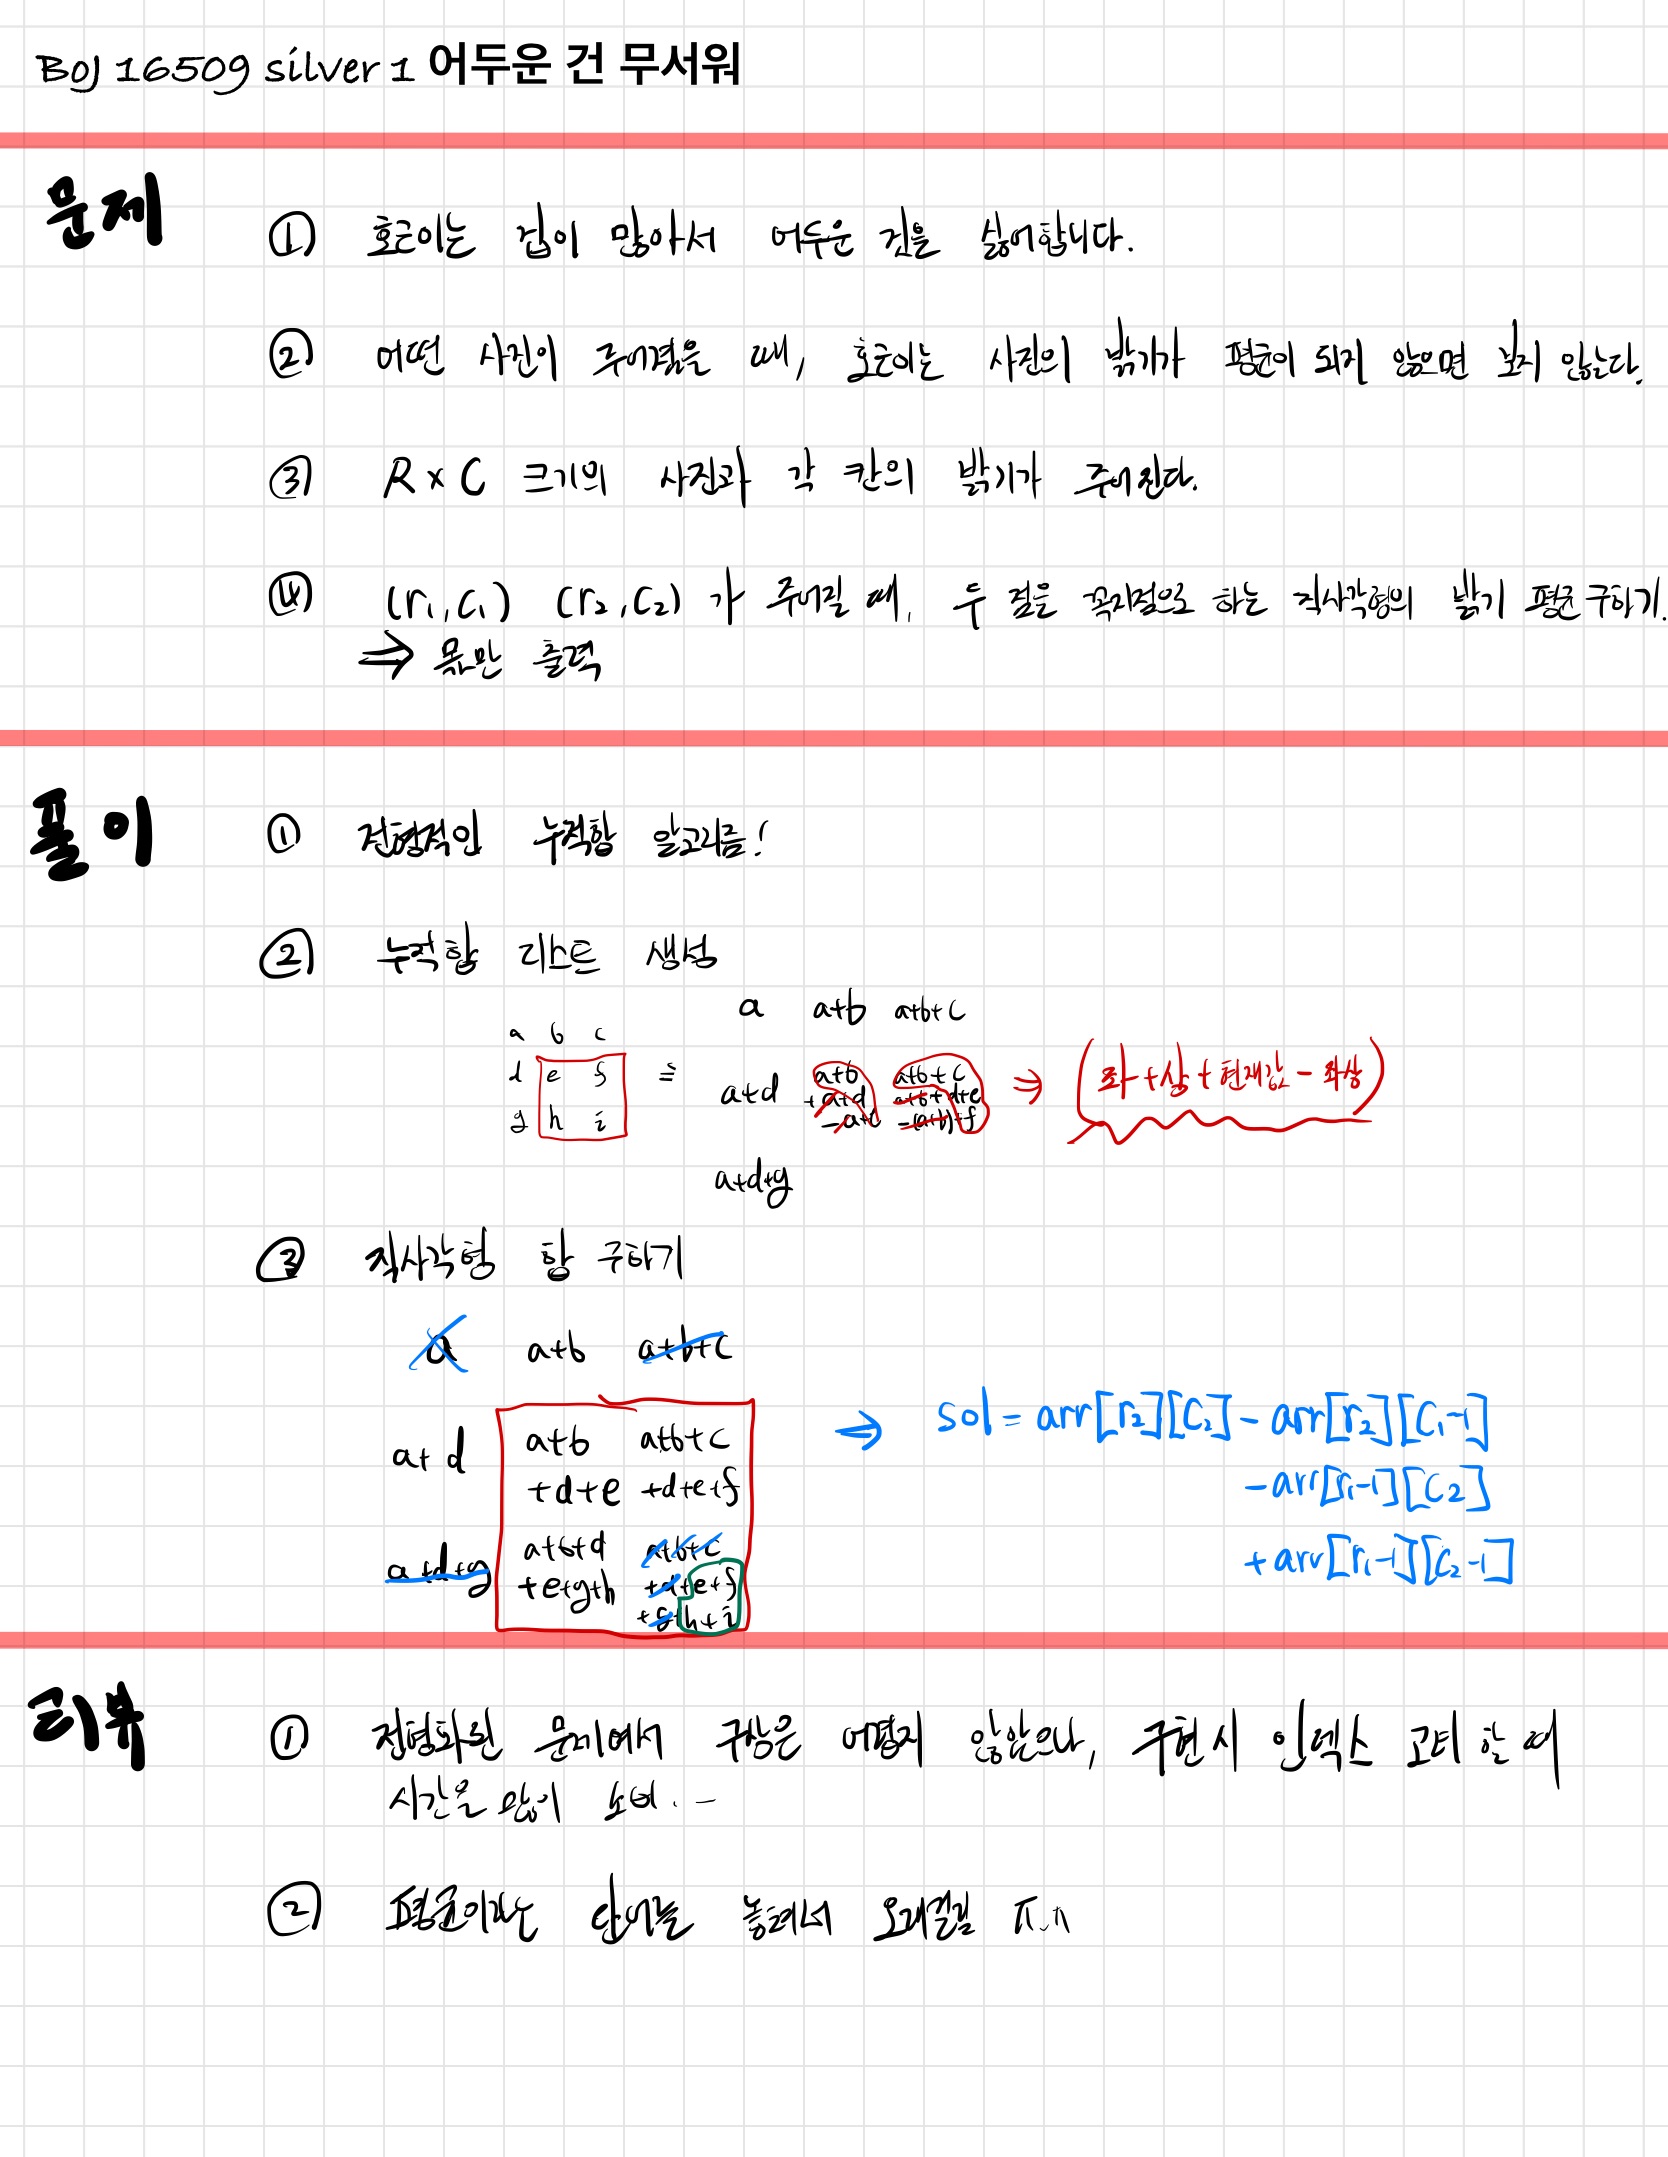 BOJ 16509 silver 1 어두운 건 무서워
문제
① 호근이는 겁이 많아서 어두운 것을 싫어합니다.
② 어떤 사진이 주어졌을 때, 호근이는 사진의 밝기가 평균이 되지 않으면 보지 않는다.
③ R x C 크기의 사진과 각 칸의 밝기가 주어진다.
④ (r₁,c₁) (r₂,c₂) 가 주어질 때, 두 점을 꼭지점으로 하는 직사각형의 밝기 평균 구하기.
⇒ 몫만 출력
풀이
① 전형적인 누적합 알고리즘!
② 누적합 리스트 생성
a b c
d e f
g h i
a a+b a+b+c
a+d a+b a+b+c
+a+d a+b+d+e
-(a+b)+f
a+d+g
⇒ (좌+상+현재값-좌상)
③ 직사각형 합 구하기
a a+b a+b+c
a+d a+b a+b+c
+d+e +d+e+f
a+d+g a+b+d a+b+c
+e+g+h +d+e+f
+g+h+i
⇒ sol = arr[r₂][c₂] - arr[r₂][c₁-1]
- arr[r₁-1][c₂]
+ arr[r₁-1][c₂-1]
리뷰
① 전형화된 문제여서 구상은 어렵지 않았으나, 구현시 인덱스 고려 할 때
시간을 많이 소비..
② 평균이라는 단어를 놓쳐서 오래걸림 ㅠ.ㅠ